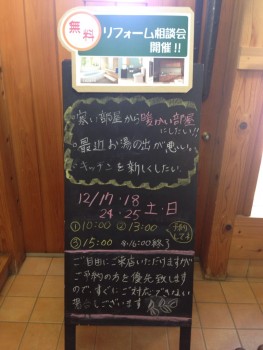 無料
リフォーム相談会
開催!!
・寒い部屋から暖かい部屋
にしたい!!
・最近お湯の出が悪い。
・キッチンを新しくしたい。
12/17・18
24・25 土・日
①10:00 ②13:00
③15:00 ④16:00終了
ご自由にご来店いただけますが
ご予約の方を優先致します
ので、すぐにご対応できない
場合もございます